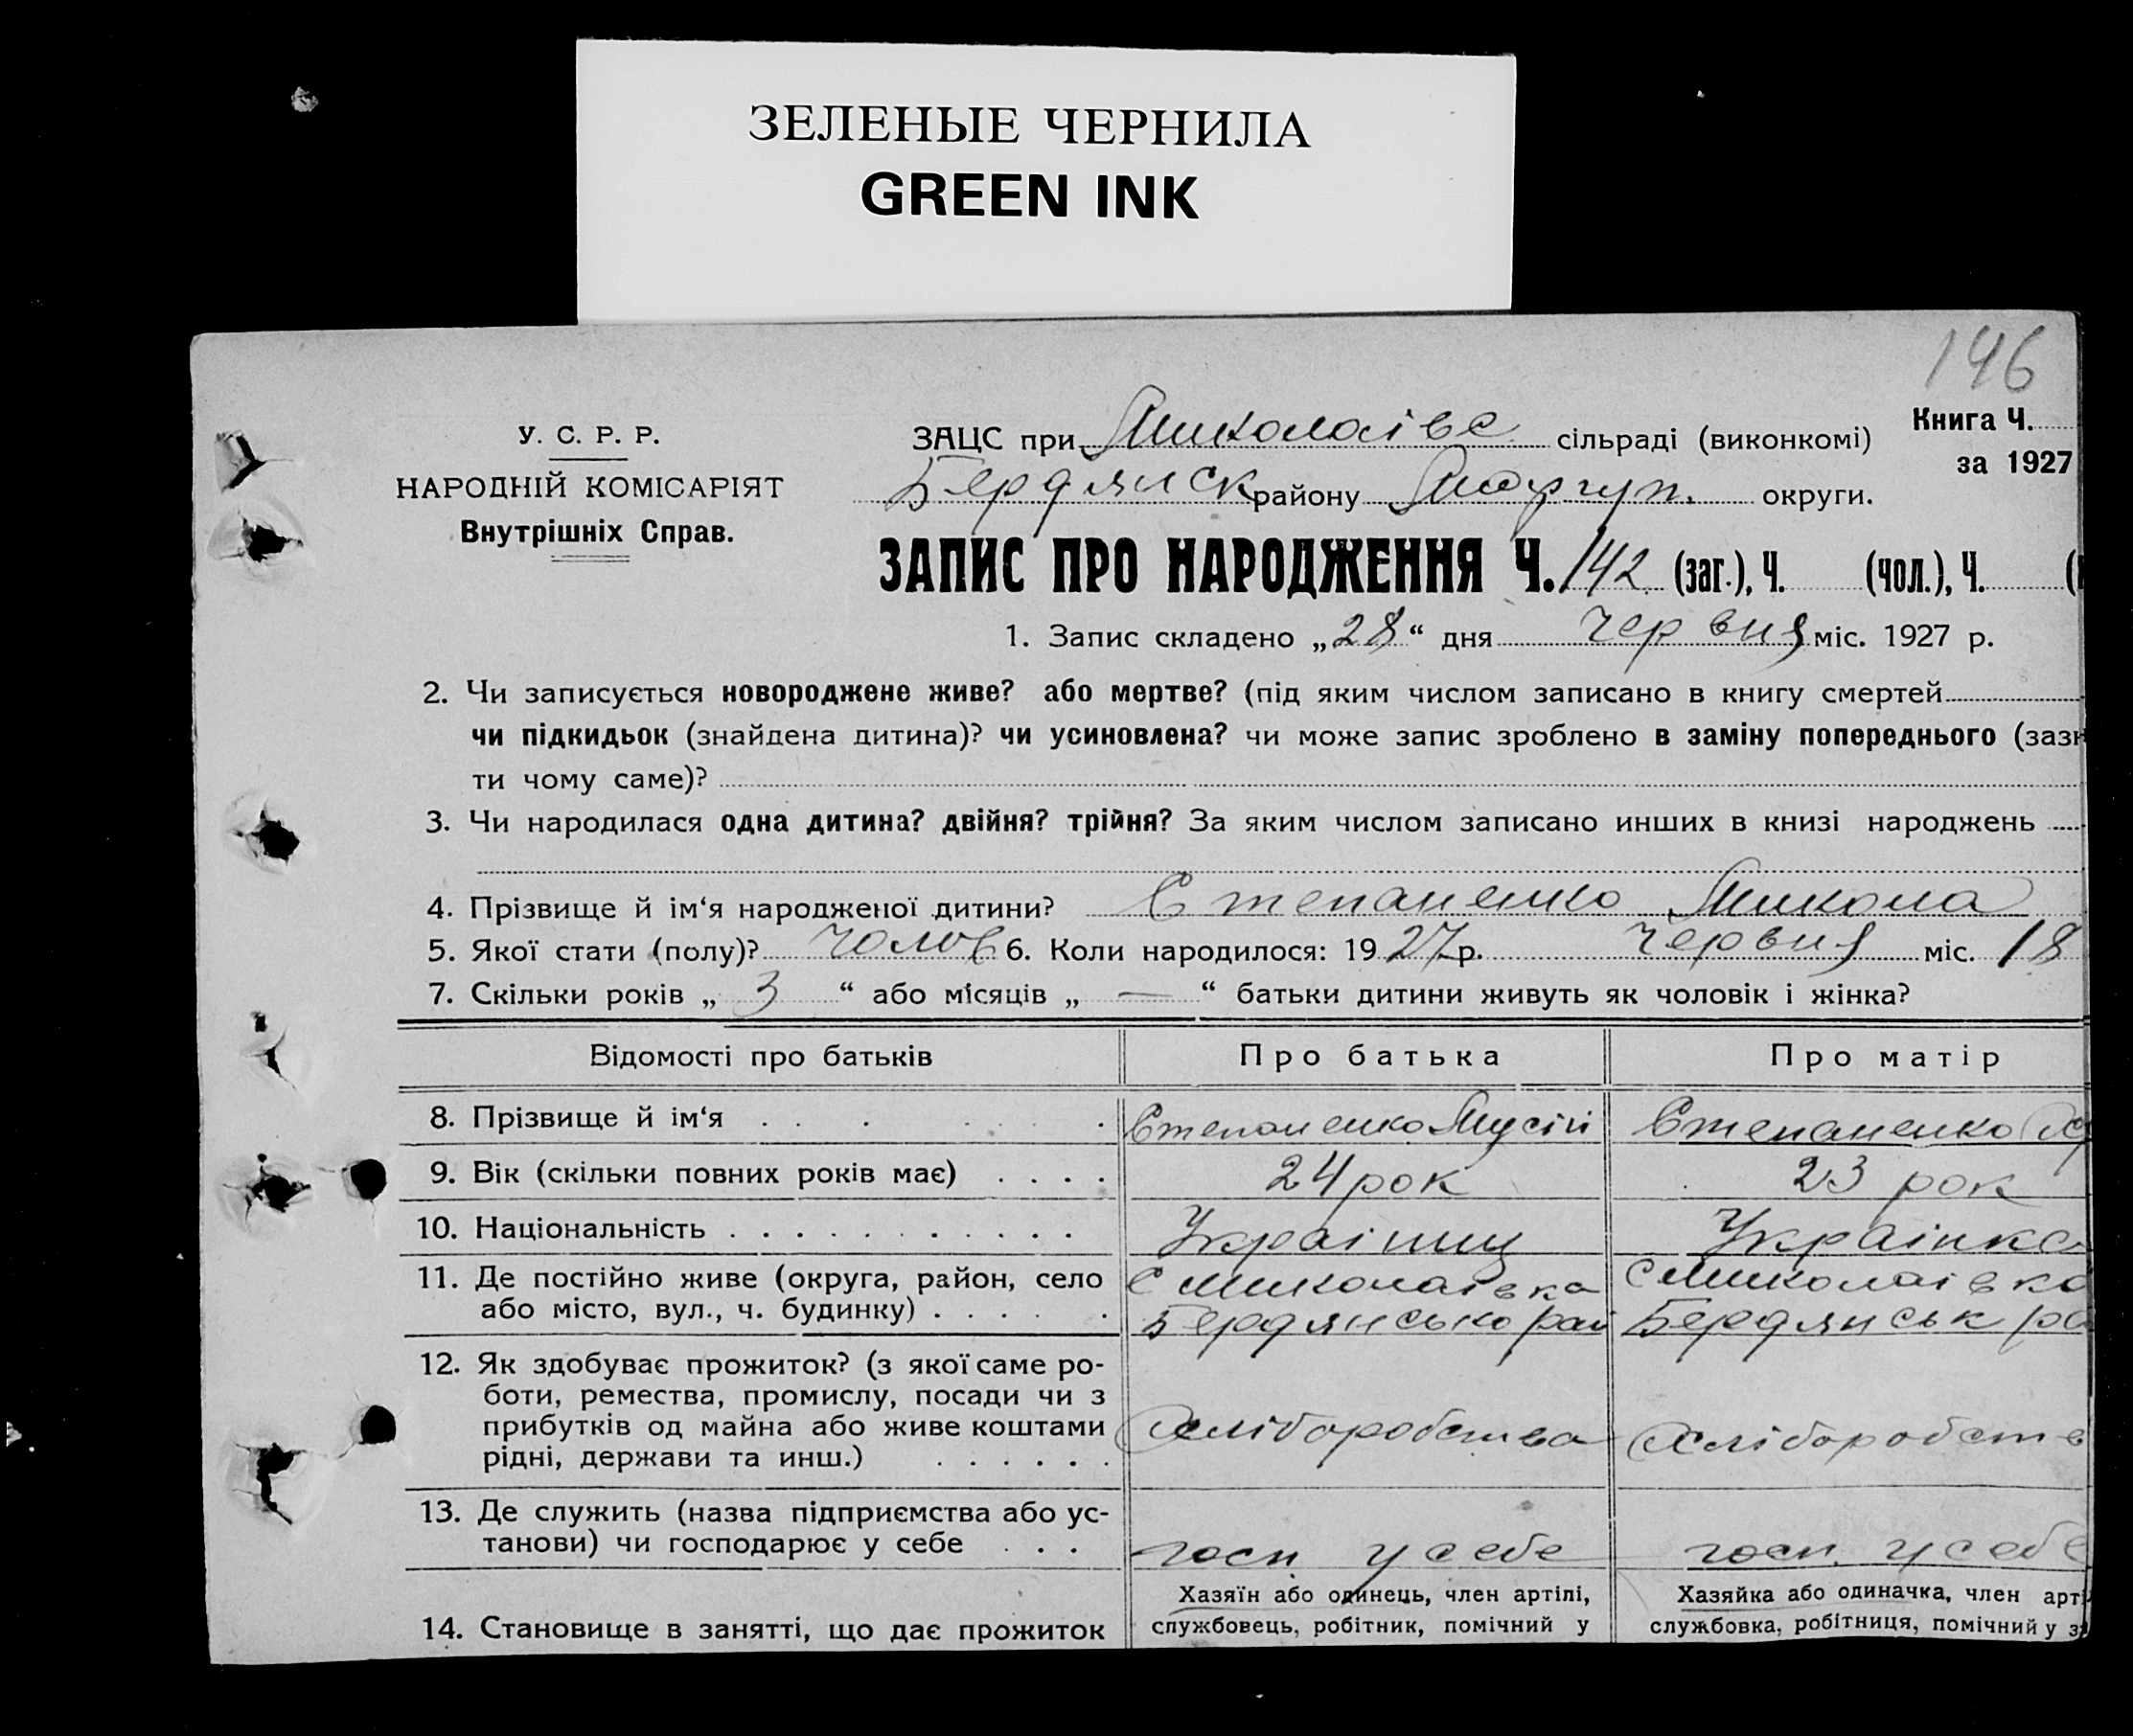 ЗЕЛЕНЫЕ ЧЕРНИЛА
GREEN INK
146
У. С. Р. Р.
НАРОДНІЙ КОМІСАРІЯТ
Внутрішніх Справ.
ЗАЦС при Миколаівс сільраді (виконкомі)
Книга Ч.
за 1927
Бердянск району Маріуп. округи.
ЗАПИС ПРО НАРОДЖЕННЯ Ч. 142 (заг.), Ч. (чол.), Ч. (
1. Запис складено „28“ дня червня міс. 1927 р.
2. Чи записується новороджене живе? або мертве? (під яким числом записано в книгу смертей
чи підкидьок (знайдена дитина)? чи усиновлена? чи може запис зроблено в заміну попереднього (зазн
ти чому саме)?
3. Чи народилася одна дитина? двійня? трійня? За яким числом записано инших в книзі народжень
4. Прізвище й ім‘я народженої дитини? Степаненко Микола
5. Якої стати (полу)? чолов 6. Коли народилося: 1927р. червня міс. 18
7. Скільки років „ 3 “ або місяців „ — “ батьки дитини живуть як чоловік і жінка?
Відомості про батьків Про батька Про матір
8. Прізвище й ім‘я . . . . Степаненко Мусій Степаненко
9. Вік (скільки повних років має) . . . . 24 рок 23 рок
10. Національність . . . . . . . . . . . Украінец Украінка
11. Де постійно живе (округа, район, село С Миколаівка С Миколаівка
або місто, вул., ч. будинку) . . . . . Бердянсько рай Бердянськ ра
12. Як здобуває прожиток? (з якої саме ро-
боти, ремества, промислу, посади чи з
прибутків од майна або живе коштами Хліборобства Хліборобств
рідні, держави та инш.) . . . . . .
13. Де служить (назва підприємства або ус-
танови) чи господарює у себе . . . госп у себе госп. у себе
Хазяїн або одинець, член артілі, Хазяйка або одиначка, член арті
14. Становище в занятті, що дає прожиток службовець, робітник, помічний у службовка, робітниця, помічний у з